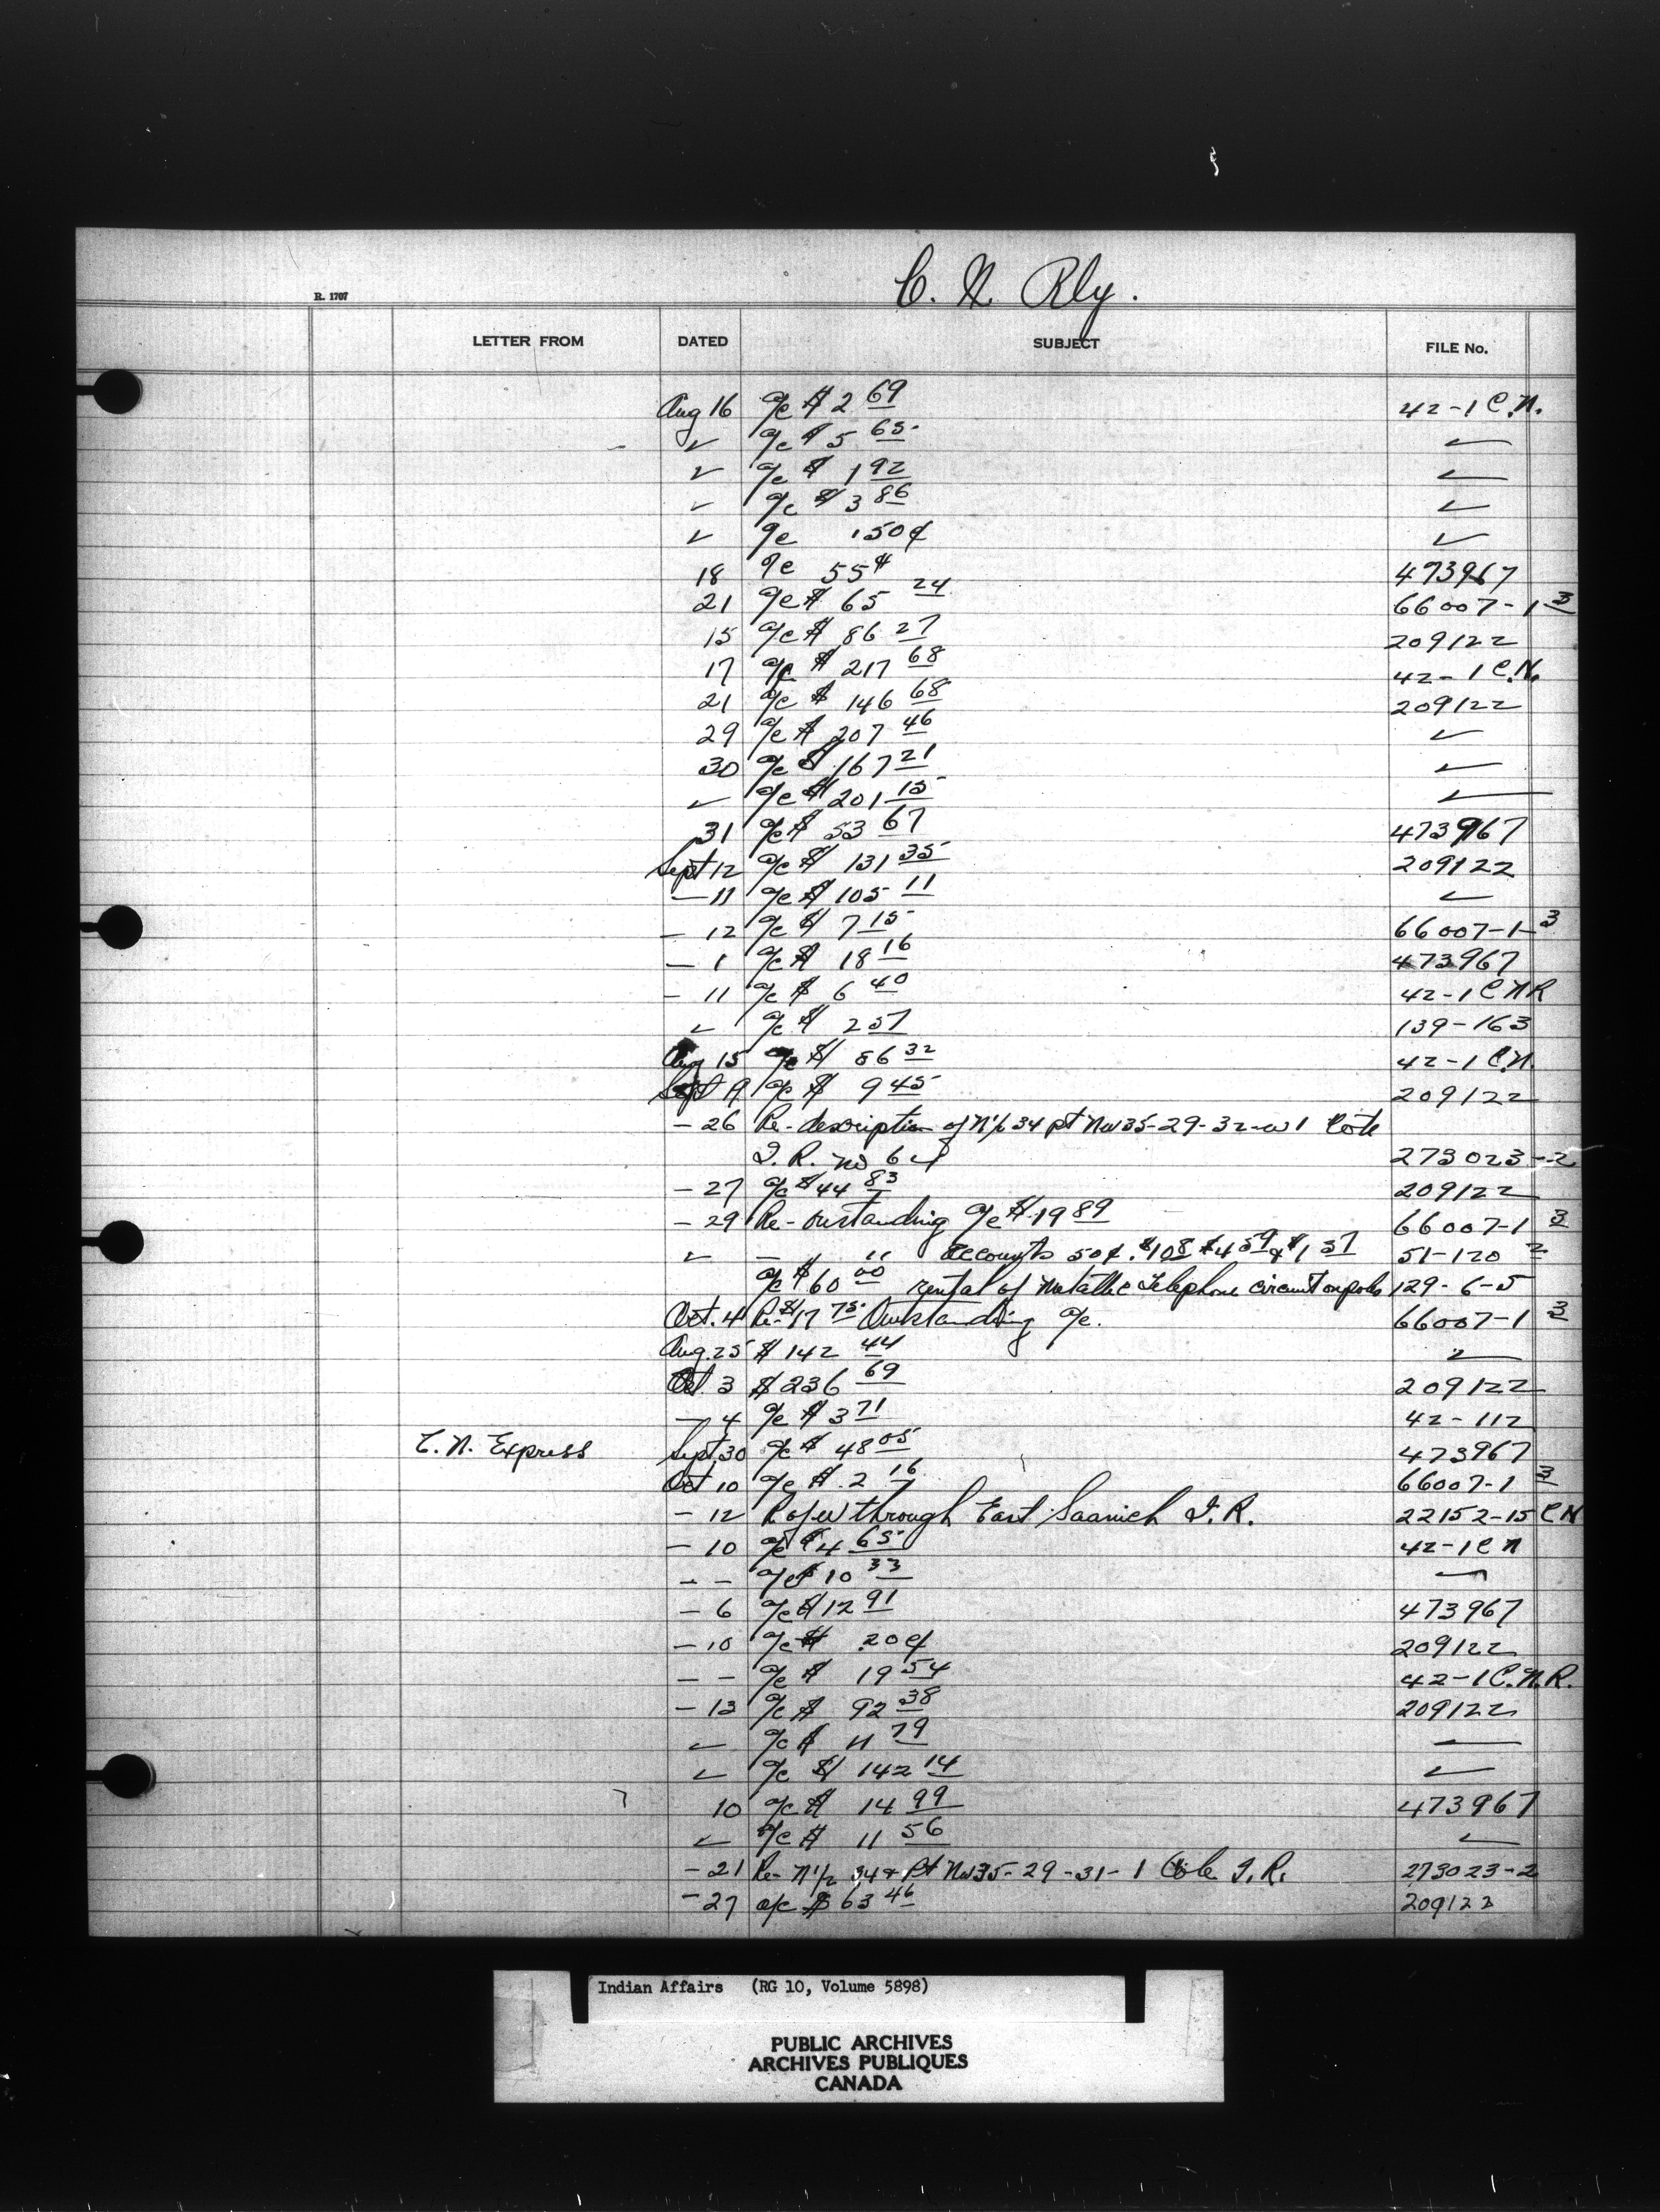 C. N. Rly.
R. 1707
LETTER FROM DATED SUBJECT FILE No.
Aug 16 a/c $ 2 69 42-1 C.N.
✓ a/c $ 5 65 ✓
✓ a/c $ 1 92 ✓
✓ a/c $ 3 86 ✓
✓ a/c .50¢ ✓
18 a/c 55¢ 473967
21 a/c $ 65 24 66007-1 3
15 a/c $ 86 27 209122
17 a/c $ 217 68 42-1 C.N.
21 a/c $ 146 68 209122
29 a/c $ 207 46 ✓
30 a/c $ 167 21 ✓
✓ a/c $ 201 15 ✓
31 a/c $ 53 67 473967
Sept 12 a/c $ 131 35 209122
— 11 a/c $ 105 11 ✓
— 12 a/c $ 7 15 66007-1-3
— 1 a/c $ 18 16 473967
— 11 a/c $ 6 40 42-1 C N R
✓ a/c $ 2 57 139-163
Aug 15 a/c $ 86 32 42-1 C.N.
Sept 9 a/c $ 9 45 209122
— 26 Re- description of N½ 34 pt NW35-29-32-W1 Cote
I. R. no 64 273023-2
— 27 a/c $ 44 83 209122
— 29 Re- Oustanding a/c $ 19 89 66007-1 3
✓ — " accounts 50¢. $1 08 $4 59 & $1 57 51-120 2
a/c $ 60 00 rental of metallic telephone circuit on poles 129-6-5
Oct. 4 Re- $17 75 Outstanding a/c. 66007-1 3
Aug. 25 $ 142 44 ✓
Oct. 3 $ 236 69 209122
— 4 a/c $ 3 71 42-112
C. N. Express Sept 30 a/c $ 48 05 473967
Oct 10 a/c $ 2 16 66007-1 3
— 12 R of W through East Saanich I. R. 22152-15 C N
— 10 a/c $ 4 65 42-1 C N
— — a/c $ 10 33 ✓
— 6 a/c $ 12 91 473967
— 10 a/c $ .20¢ 209122
— — a/c $ 19 54 42-1 C.N.R.
— 13 a/c $ 92 38 209122
✓ a/c $ 11 79 —
✓ a/c $ 142 14 ✓
10 a/c $ 14 99 473967
✓ a/c $ 11 56 ✓
— 21 Re- N½ 34 & Pt NW35-29-31-1 Cote I. R. 273023-2
— 27 a/c $ 63 46 209122
Indian Affairs (RG 10, Volume 5898)
PUBLIC ARCHIVES
ARCHIVES PUBLIQUES
CANADA